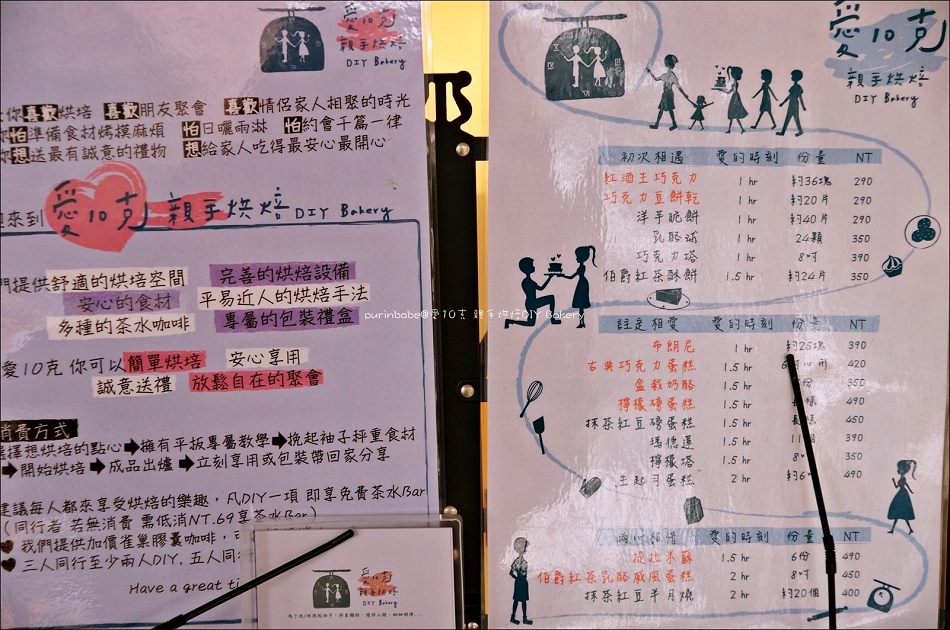 愛10克
親手烘焙
DIY Bakery
你喜歡烘焙 喜歡朋友聚會 喜歡情侶家人相聚的時光
怕準備食材烤摸麻煩 怕日曬雨淋 怕約會千篇一律
想送最有誠意的禮物 想給家人吃得最安心最開心
來到 愛10克 親手烘焙 DIY Bakery
們提供舒適的烘焙空間 完善的烘焙設備
安心的食材 平易近人的烘焙手法
多種的茶水咖啡 專屬的包裝禮盒
愛10克 你可以簡單烘焙 安心享用
誠意送禮 放鬆自在的聚會
消費方式
選擇想烘焙的點心➡擁有平板專屬教學➡挽起袖子秤重食材
➡開始烘焙➡成品出爐➡立刻享用或包裝帶回家分享
建議每人都來享受烘焙的樂趣，凡DIY一項 即享免費茶水Bar
(同行者 若無消費 需低消NT.69享茶水Bar)
我們提供加價雀巢膠囊咖啡，
三人同行至少兩人DIY, 五人同
Have a great ti
愛10克
親手烘焙
DIY Bakery
愛10克
親手烘焙
DIY Bakery
初次相遇 愛的時刻 份量 NT
紅酒生巧克力 1 hr 約36塊 290
巧克力豆餅乾 1 hr 約20片 290
洋芋脆餅 1 hr 約40片 290
乳酪球 1 hr 24顆 350
巧克力塔 1 hr 8吋 390
伯爵紅茶酥餅 1.5 hr 約24片 350
註定相愛 愛的時刻 份量 NT
布朗尼 1 hr 約25塊 390
古典巧克力蛋糕 1.5 hr 420
盆栽奶酪 1.5 hr 份 350
檸檬磅蛋糕 1.5 hr 條 490
抹茶紅豆磅蛋糕 1.5 hr 450
瑪德蓮 1.5 hr 11 390
檸檬塔 1.5 hr 390
生起司蛋糕 2 hr 約6 490
愛的時刻 份量 NT
提拉米蘇 1.5 hr 6份 490
伯爵紅茶乳酪戚風蛋糕 2 hr 8吋 450
抹茶紅豆半月燒 2 hr 約20個 400
purinbabe@愛10克 親手烘焙DIY Bakery